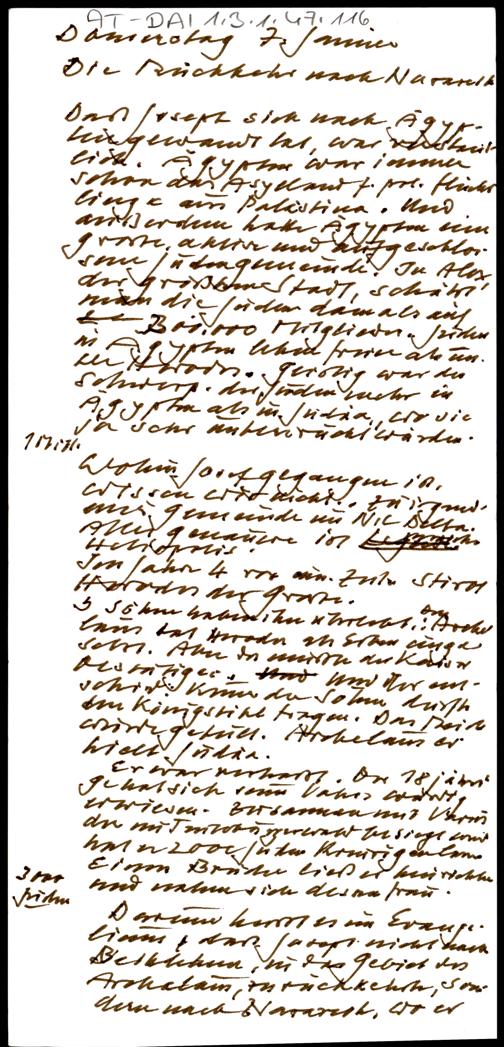 AT-DAI 1.3.1.47.116
Donnerstag 7. Jänner
Die Rückkehr nach Nazareth
Daß Joseph sich nach Ägyp-
ten gewandt hat, war verständ-
lich. Ägypten war immer
schon das Asylland f. pol. Flücht
linge aus Palästina. Und
außerdem hatte Ägypten eine
große, aktive und aufgeschlos-
sene Judengemeinde. In Alex.
der größten Stadt, schätzt
man die Juden damals auf
300.000 Mitglieder. Juden
in Ägypten lebten freier als un-
ter Herodes. Geistig war der
Schwerp. der Juden mehr in
Ägypten als in Judäa, wo sie
ja sehr unterdrückt wurden.
Wohin Josef gegangen ist,
wissen wir nicht. Zu irgend-
einer Gemeinde im Nil Delta.
Alles genauere ist
Heliopolis.
Im Jahre 4 vor un. Zeitr. stirbt
Herodes der Große.
5 Söhne haben ihn überlebt. Den Arche
laus hat Herodes als Erben einge
setzt. Aber das mußte der Kaiser
bestätigen. Und der ent-
schied: Keiner der Söhne durfte
den Königstitel tragen. Das Reich
wurde geteilt. Archelaus er
hielt Judäa.
Er war verhaßt. Der 18 jährige
hat sich seines Vaters würdig
erwiesen. Zusammen mit Varus
hat er 2000 Juden kreuzigen lassen
Einen Bruder ließ er hinrichten
und nahm sich dessen Frau.
3000
Juden
Darum heißt es im Evange-
lium, daß Joseph nicht nach
Bethlehem, in das Gebiet des
Archelaus, zurückkehrte, son-
dern nach Nazareth, wo er